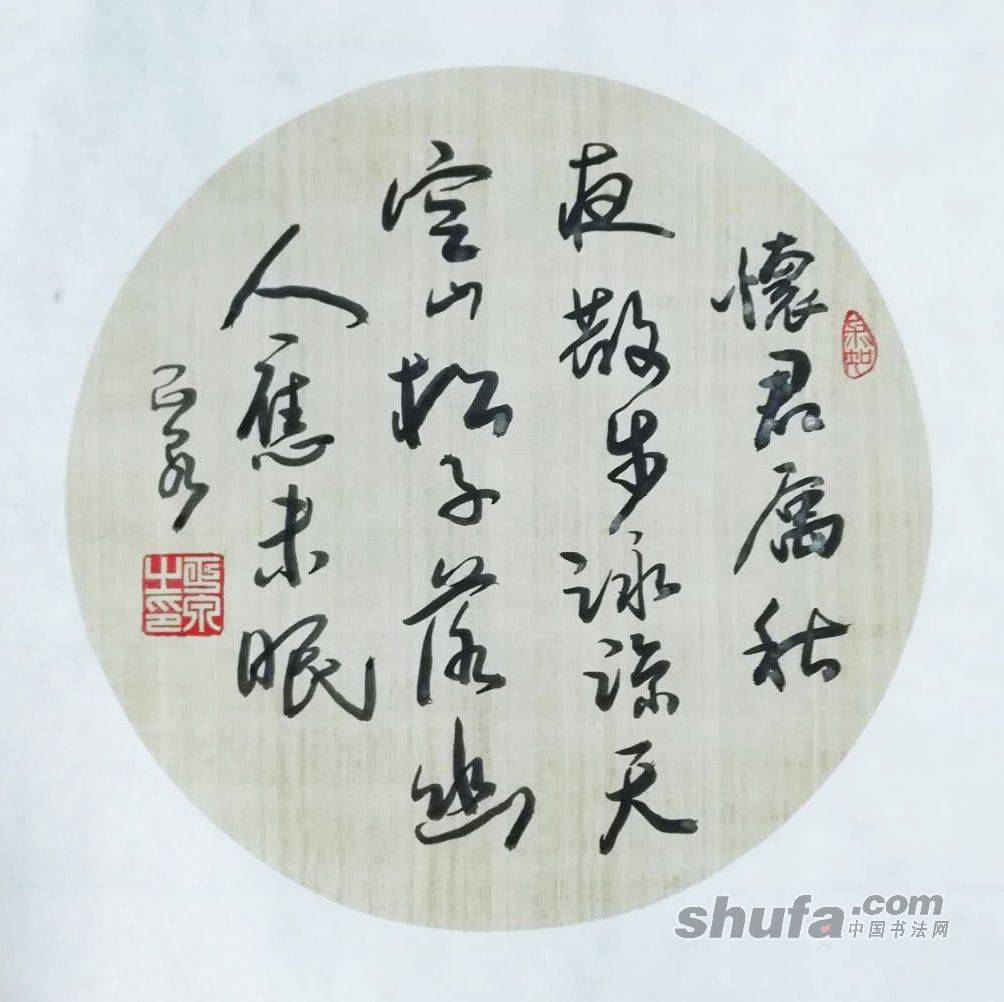 懷君屬秋
夜散步詠涼天
空山松子落幽
人應未眠
shufa.com
中国书法网